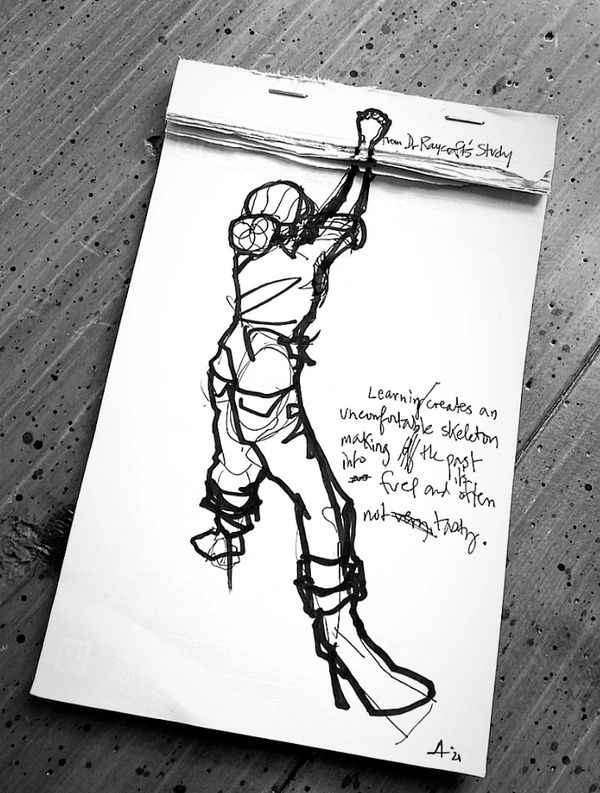 from Dr Raycraft's Study
Learning creates an
uncomfortable skeleton
making of the past
into
fuel and often
not tasty.
A '21